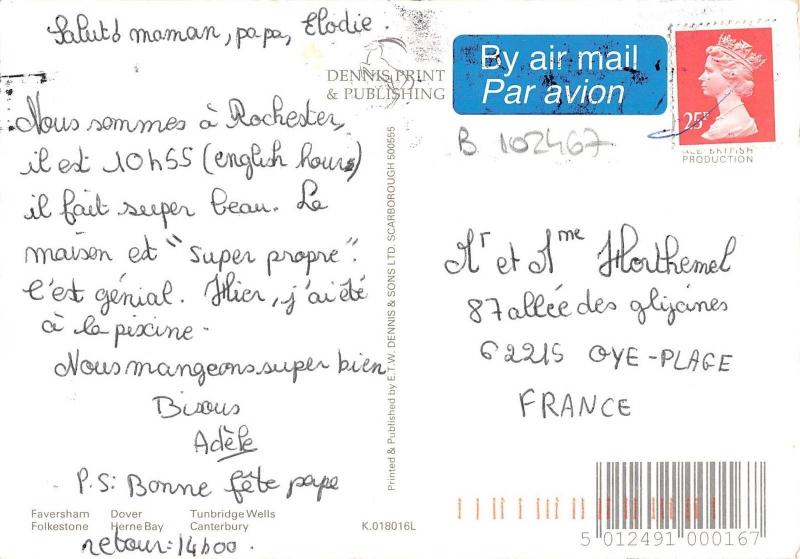 Salut! maman, papa, Elodie.
DENNIS PRINT
& PUBLISHING
Nous sommes à Rochester,
il est 10h55 (english hours)
il fait super beau. La
maison est "super propre".
C'est génial. Hier, j'ai été
à la piscine.
Nous mangeons super bien
Bisous
Adèle
P.S: Bonne fête papa
Faversham Dover Tunbridge Wells
Folkestone Herne Bay Canterbury
retour: 14h00.
K.018016L
Printed & Published by E.T.W. DENNIS & SONS LTD. SCARBOROUGH 500555
By air mail
Par avion
25P
ALL BRITISH
PRODUCTION
B 102467
Mr et Mme Horthemel
87 allée des glycines
62215 OYE-PLAGE
FRANCE
5 012491 000167